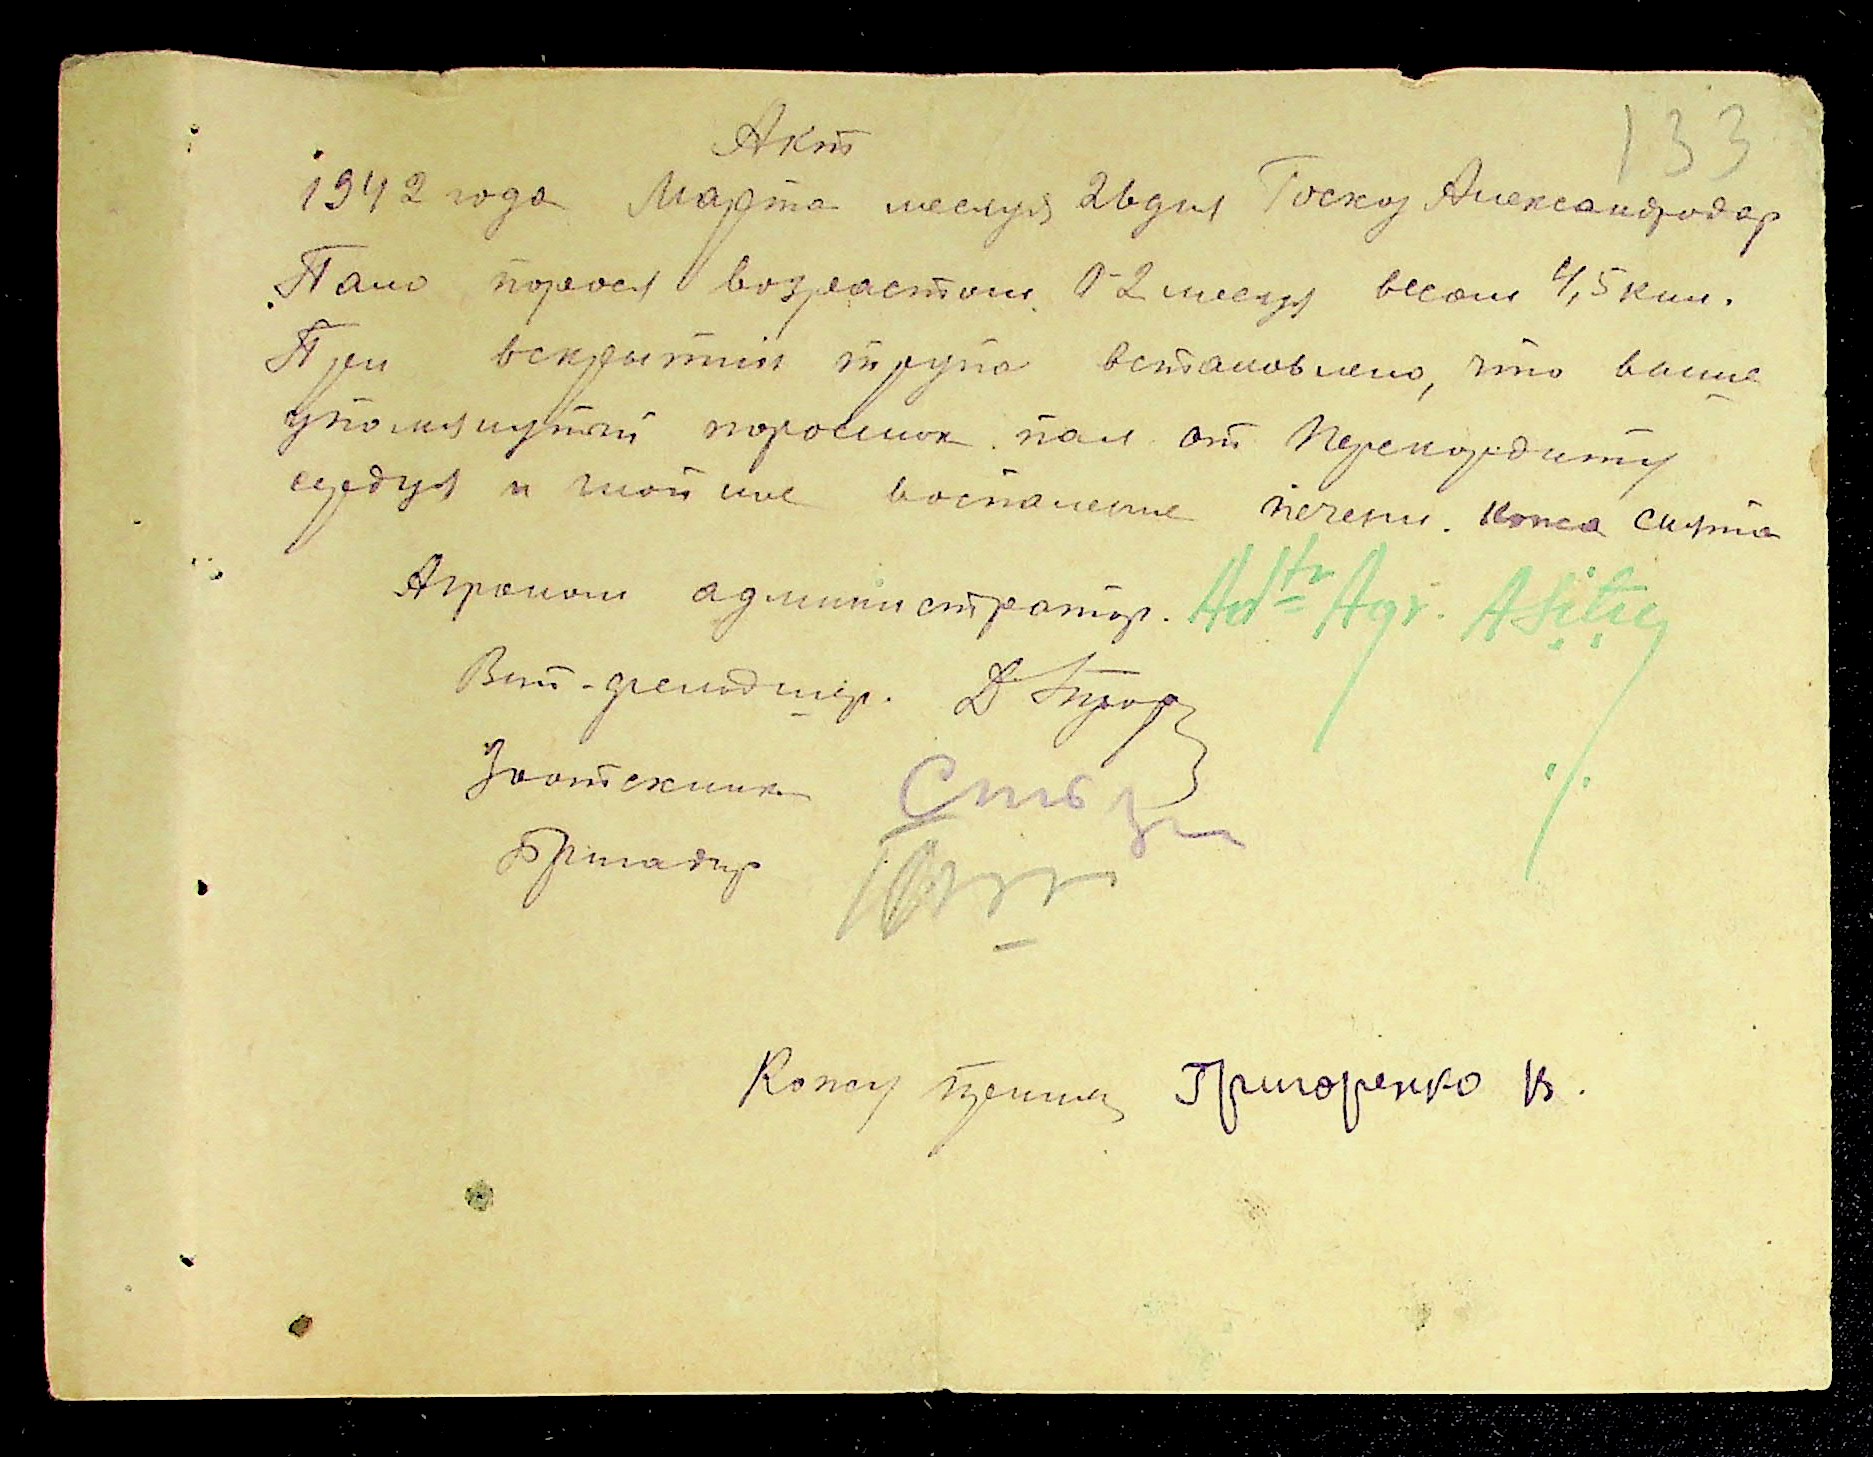 133
Акт
1942 года Марта месяця 26 дня Госхоз Александродар
Пало порося возрастом 2 месяця весом 4,5 кил.
При вскрытии трупа встановлено, что више
упомянутый поросенок пал от Перекордиту
сердця и такой же воспаление печени. Кожа снята
Агроном администратор. Adtr Agr.
Вет-фельдшер. Д
Зоотехник
Бригадир
Кожу принял Григоренко В.